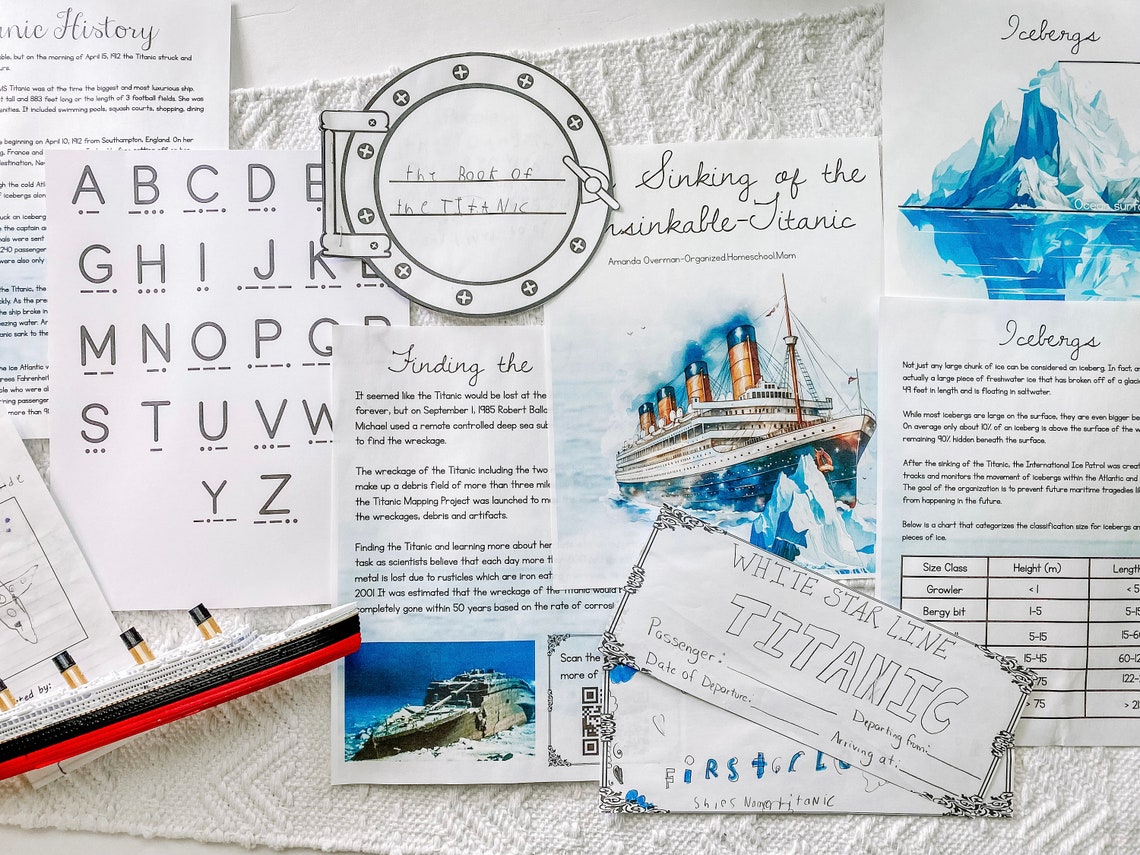 nic History
but on the morning of April 15, 1912 the Titanic struck and
MS Titanic was at the time the biggest and most luxurious ship.
tall and 883 feet long or the length of 3 football fields. She was
It included swimming pools, squash courts, shopping, dining
beginning on April 10, 1912 from Southampton, England. On her
France and
the cold Atl
of icebergs
uck an iceberg
the captain
were sent
passenger
were also only
the Titanic, the
As the
the ship broke in
water.
sank to the
Atlantic
Fahrenheit
who were
passenger
more than
A B C D E
G H I J K L
M N O P Q R
S T U V W
Y Z
the BOOK OF
the TITANIC
Sinking of the
nsinkable-Titanic
Amanda Overman-Organized.Homeschool.Mom
Icebergs
Ocean surf
Finding the
It seemed like the Titanic would be lost at the
forever, but on September 1, 1985 Robert Balla
Michael used a remote controlled deep sea sub
to find the wreckage.
The wreckage of the Titanic including the two
make up a debris field of more than three mile
the Titanic Mapping Project was launched to m
the wreckages, debris and artifacts.
Finding the Titanic and learning more about her
task as scientists believe that each day more th
metal is lost due to rusticles which are iron eat
2001 It was estimated that the wreckage of the Titanic would
completely gone within 50 years based on the rate of corrosi
Scan the
more of
Icebergs
Not just any large chunk of ice can be considered an iceberg. In fact, an
actually a large piece of freshwater ice that has broken off of a glac
49 feet in length and is floating in saltwater.
While most icebergs are large on the surface, they are even bigger be
On average only about 10% of an iceberg is above the surface of the w
remaining 90% hidden beneath the surface.
After the sinking of the Titanic, the International Ice Patrol was creat
tracks and monitors the movement of icebergs within the Atlantic and
The goal of the organization is to prevent future maritime tragedies li
from happening in the future.
Below is a chart that categorizes the classification size for icebergs an
pieces of ice.
Size Class Height (m) Length
Growler < 1 < 5
Bergy bit 1-5 5-15
5-15 15-60
15-45 60-12
75 122-2
> 75 > 21
WHITE STAR LINE
TITANIC
Passenger:
Date of Departure:
Departing from:
Arriving at:
FIRST CL
ted by: